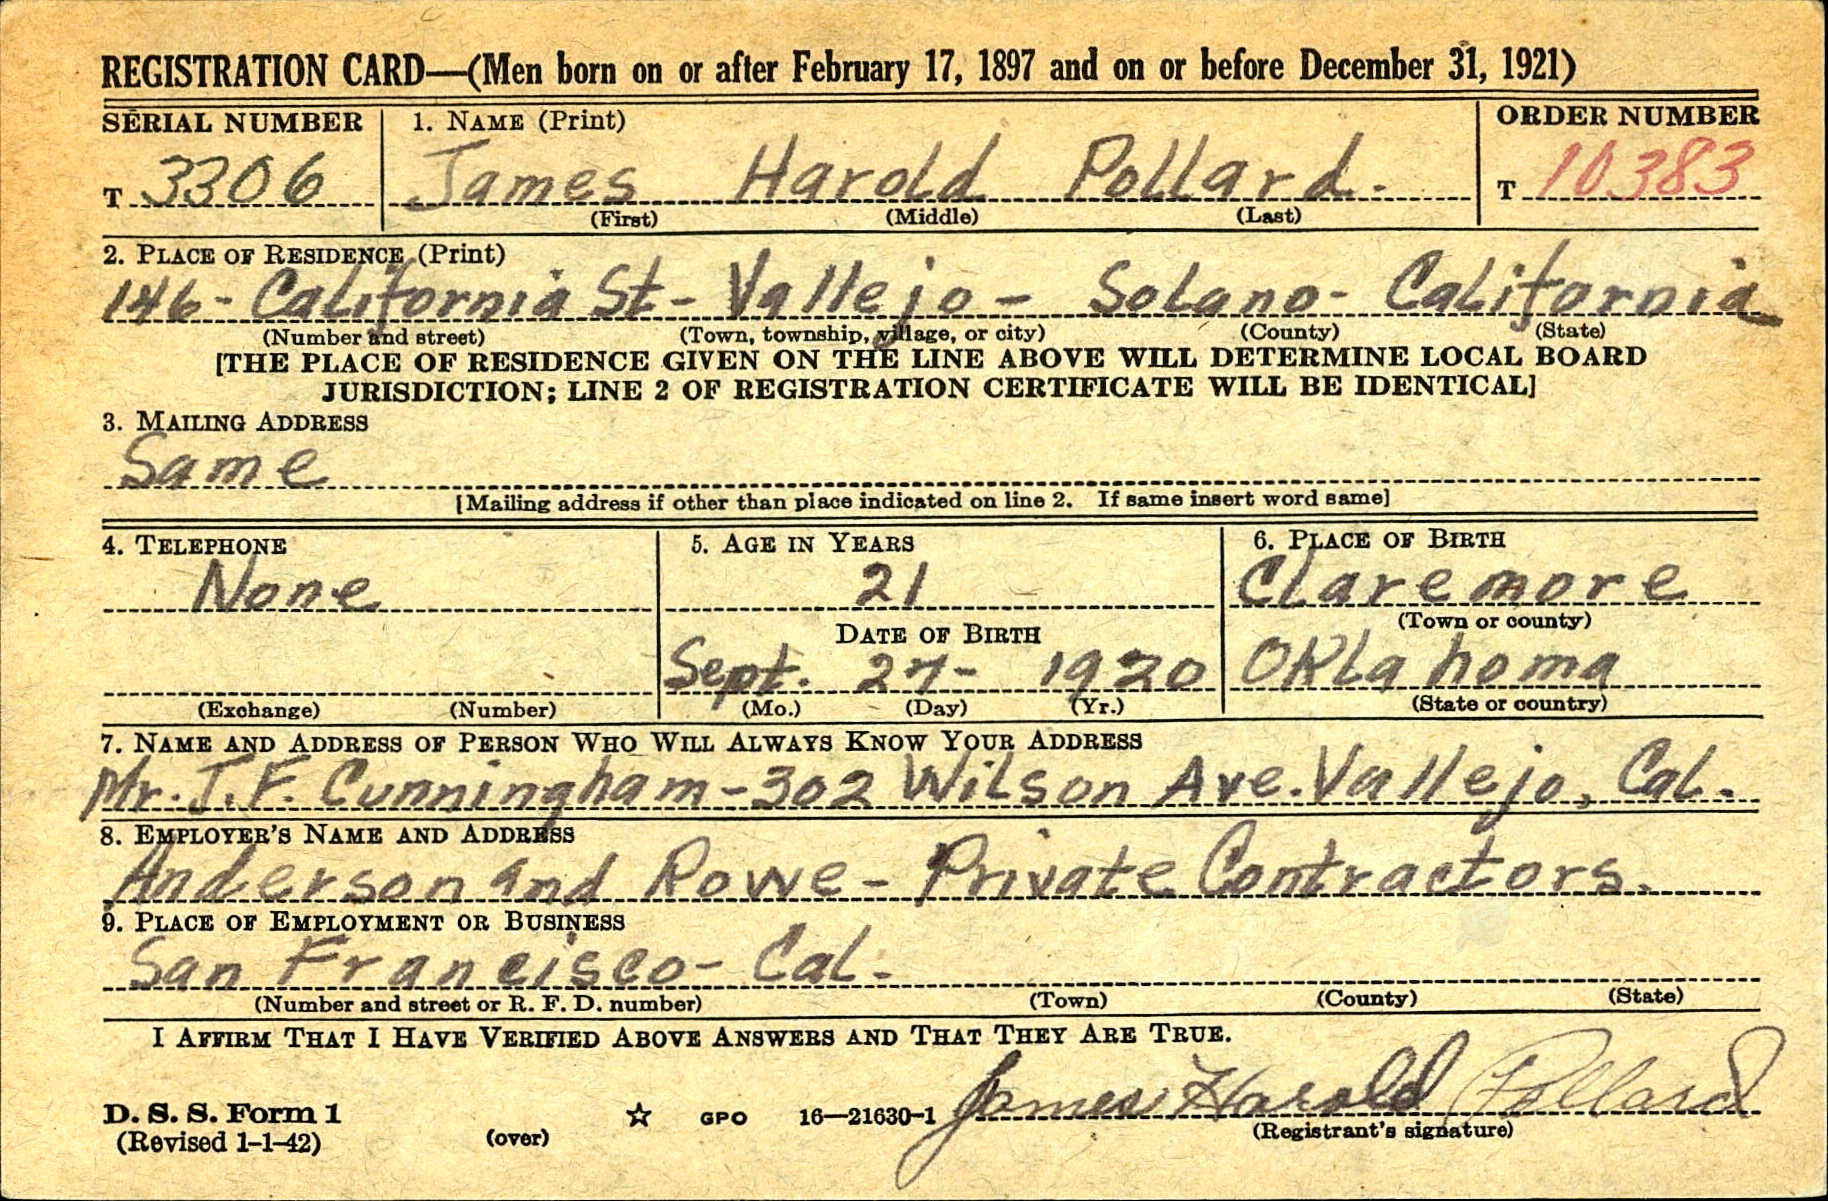 REGISTRATION CARD—(Men born on or after February 17, 1897 and on or before December 31, 1921)
SERIAL NUMBER 1. NAME (Print) ORDER NUMBER
T 3306 James Harold Pollard. T 10383
(First) (Middle) (Last)
2. PLACE OF RESIDENCE (Print)
146- California St- Vallejo- Solano- California
(Number and street) (Town, township, village, or city) (County) (State)
[THE PLACE OF RESIDENCE GIVEN ON THE LINE ABOVE WILL DETERMINE LOCAL BOARD
JURISDICTION; LINE 2 OF REGISTRATION CERTIFICATE WILL BE IDENTICAL]
3. MAILING ADDRESS
Same
[Mailing address if other than place indicated on line 2. If same insert word same]
4. TELEPHONE 5. AGE IN YEARS 6. PLACE OF BIRTH
None 21 Claremore
(Town or county)
DATE OF BIRTH
Sept. 27- 1920 Oklahoma
(Exchange) (Number) (Mo.) (Day) (Yr.) (State or country)
7. NAME AND ADDRESS OF PERSON WHO WILL ALWAYS KNOW YOUR ADDRESS
Mr. J.F. Cunningham-302 Wilson Ave. Vallejo, Cal.
8. EMPLOYER'S NAME AND ADDRESS
Anderson and Rowe- Private Contractors.
9. PLACE OF EMPLOYMENT OR BUSINESS
San Francisco- Cal.
(Number and street or R. F. D. number) (Town) (County) (State)
I AFFIRM THAT I HAVE VERIFIED ABOVE ANSWERS AND THAT THEY ARE TRUE.
James Harold Pollard
D. S. S. Form 1 ☆ GPO 16—21630-1
(Registrant's signature)
(Revised 1-1-42) (over)